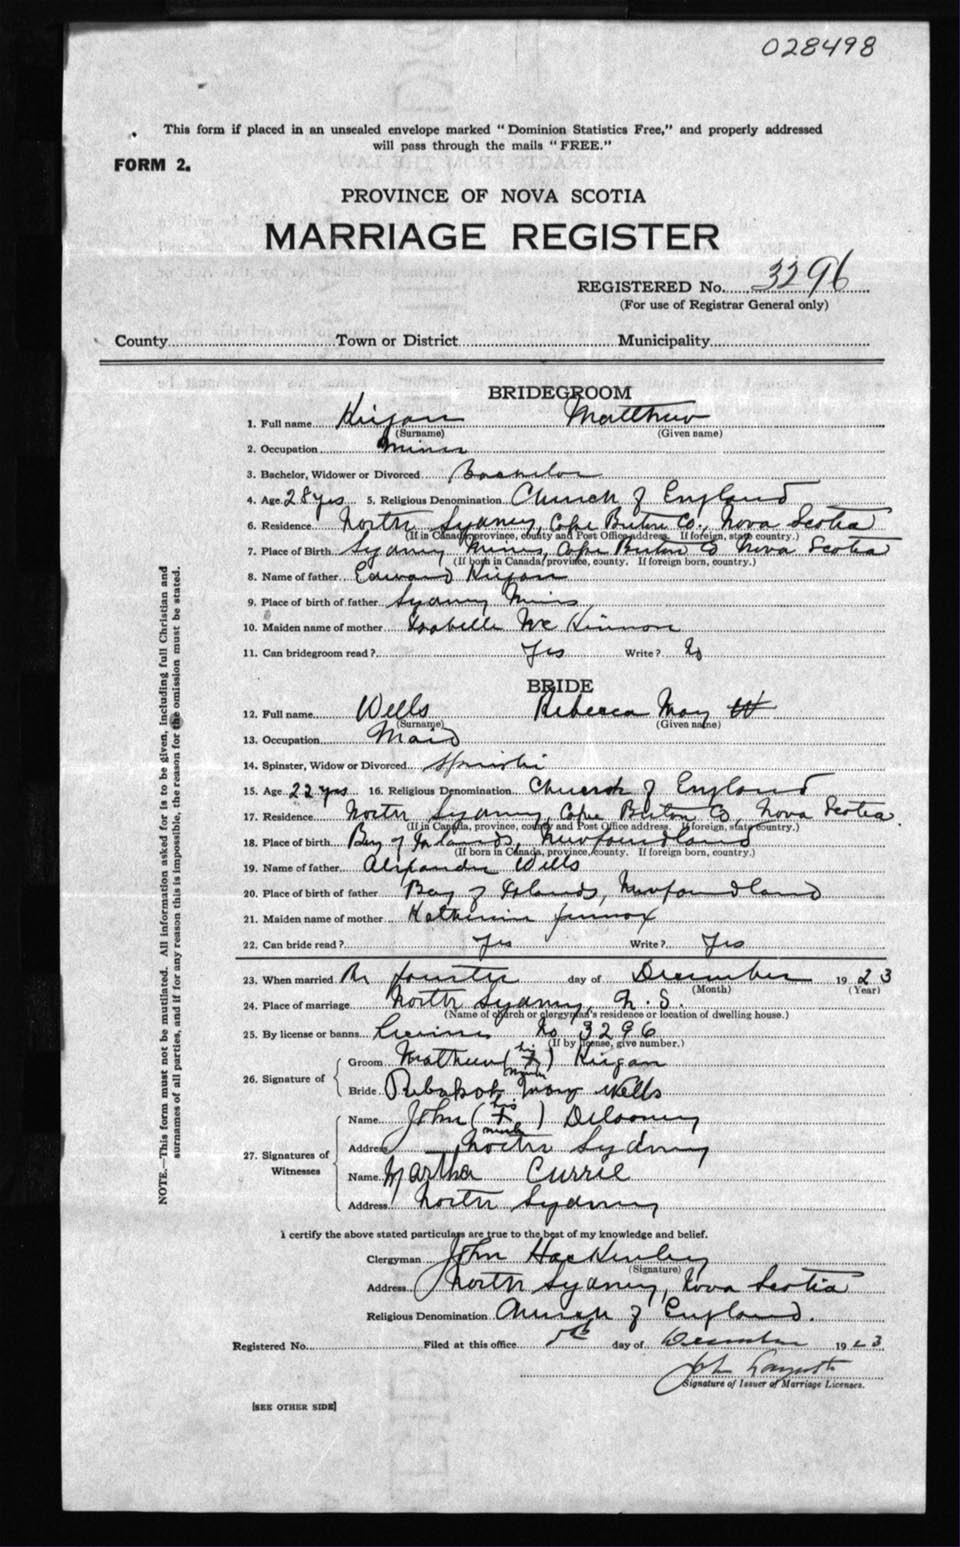 028498
This form if placed in an unsealed envelope marked "Dominion Statistics Free," and properly addressed
will pass through the mails "FREE."
FORM 2.
PROVINCE OF NOVA SCOTIA
MARRIAGE REGISTER
REGISTERED No. 3296
(For use of Registrar General only)
County Town or District Municipality
BRIDEGROOM
1. Full name Kirjan Matthew
(Surname) (Given name)
2. Occupation Miner
3. Bachelor, Widower or Divorced Bachelor
4. Age 28 yrs 5. Religious Denomination Church of England
6. Residence North Sydney, Cape Breton Co., Nova Scotia
(If in Canada, province, county and Post Office address. If foreign, state country.)
7. Place of Birth Sydney Mines, Cape Breton Co Nova Scotia
(If born in Canada, province, county. If foreign born, country.)
8. Name of father Edward Kirjan
9. Place of birth of father Sydney Mines
10. Maiden name of mother Isabelle McKinnon
11. Can bridegroom read? Yes Write? No
BRIDE
12. Full name Wells Rebecca May W
(Surname) (Given name)
13. Occupation Maid
14. Spinster, Widow or Divorced Spinster
15. Age 22 yrs 16. Religious Denomination Church of England
17. Residence North Sydney, Cape Breton Co, Nova Scotia.
(If in Canada, province, county and Post Office address. If foreign, state country.)
18. Place of birth Bay of Islands, Newfoundland
(If born in Canada, province, county. If foreign born, country.)
19. Name of father Alexander Wells
20. Place of birth of father Bay of Islands, Newfoundland
21. Maiden name of mother Katherine
22. Can bride read? Yes Write? Yes
23. When married fourth day of December 1923
(Month) (Year)
24. Place of marriage North Sydney, N.S.
(Name of church or clergyman's residence or location of dwelling house.)
25. By license or banns License No 3296
(If by license, give number.)
26. Signature of
Groom Mathew (his X mark) Kirjan
Bride May Wells
27. Signatures of Witnesses
Name John (his X mark) Delooney
Address North Sydney
Name Martha Currie
Address North Sydney
I certify the above stated particulars are true to the best of my knowledge and belief.
Clergyman John
(Signature)
Address North Sydney, Nova Scotia
Religious Denomination Church of England.
Registered No. Filed at this office 5th day of December 1923
John
Signature of Issuer of Marriage Licenses.
[SEE OTHER SIDE]
NOTE.—This form must not be mutilated. All information asked for is to be given, including full Christian and
surnames of all parties, and if for any reason this is impossible, the reason for the omission must be stated.